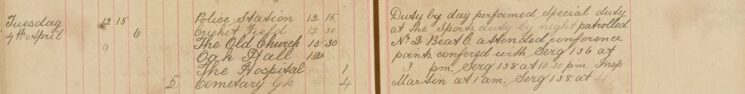 Tuesday 12 15 Police Station 12.15.
4th April 6 Cricket Field 12 30
9 The Old Church 12.30
Oak Hall
The Hospital 1
5 Cemetary Gs 4
Duty by day performed special duty
at the Sports duty by night patrolled
No 2 Beat attended conference
points confered with Serg 136 at
pm. Serg 138 at 10.30 pm. Insp
Martin at 1 am. Serg 138 at 4